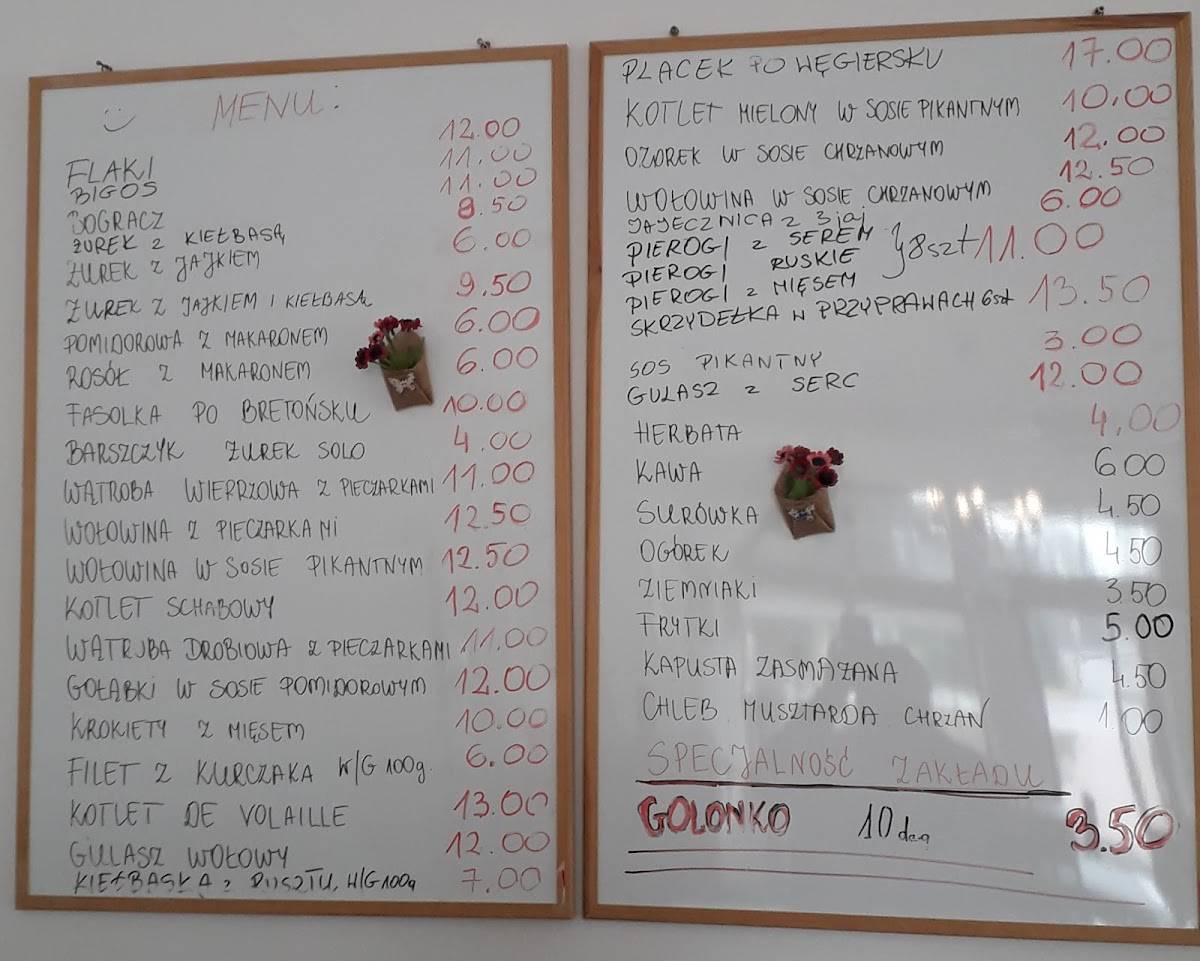 MENU:
FLAKI 12.00
BIGOS 11.00
BOGRACZ 11.00
ŻUREK Z KIEŁBASĄ 8.50
ŻUREK Z JAJKIEM 6.00
ŻUREK Z JAJKIEM I KIEŁBASĄ 9.50
POMIDOROWA Z MAKARONEM 6.00
ROSÓŁ Z MAKARONEM 6.00
FASOLKA PO BRETOŃSKU 10.00
BARSZCZYK ŻUREK SOLO 4.00
WĄTROBA WIEPRZOWA Z PIECZARKAMI 11.00
WOŁOWINA Z PIECZARKAMI 12.50
WOŁOWINA W SOSIE PIKANTNYM 12.50
KOTLET SCHABOWY 12.00
WĄTROBA DROBIOWA Z PIECZARKAMI 11.00
GOŁĄBKI W SOSIE POMIDOROWYM 12.00
KROKIETY Z MIĘSEM 10.00
FILET Z KURCZAKA W/G 100g. 6.00
KOTLET DE VOLAILLE 13.00
GULASZ WOŁOWY 12.00
KIEŁBASKA Z RUSZTU, W/G 100g 7.00
PLACEK PO WĘGIERSKU 17.00
KOTLET MIELONY W SOSIE PIKANTNYM 10.00
OZOREK W SOSIE CHRZANOWYM 12.00
WOŁOWINA W SOSIE CHRZANOWYM 12.50
JAJECZNICA Z 3 jaj 6.00
PIEROGI Z SEREM
PIEROGI RUSKIE } 8szt 11.00
PIEROGI Z MIĘSEM
SKRZYDEŁKA W PRZYPRAWACH 6szt 13.50
SOS PIKANTNY 3.00
GULASZ Z SERC 12.00
HERBATA 4,00
KAWA 6.00
SURÓWKA 4.50
OGÓREK 4.50
ZIEMNIAKI 3.50
FRYTKI 5.00
KAPUSTA ZASMAŻANA 4.50
CHLEB, MUSZTARDA CHRZAN 1.00
SPECJALNOŚĆ ZAKŁADU
GOLONKO 10 dag 3.50